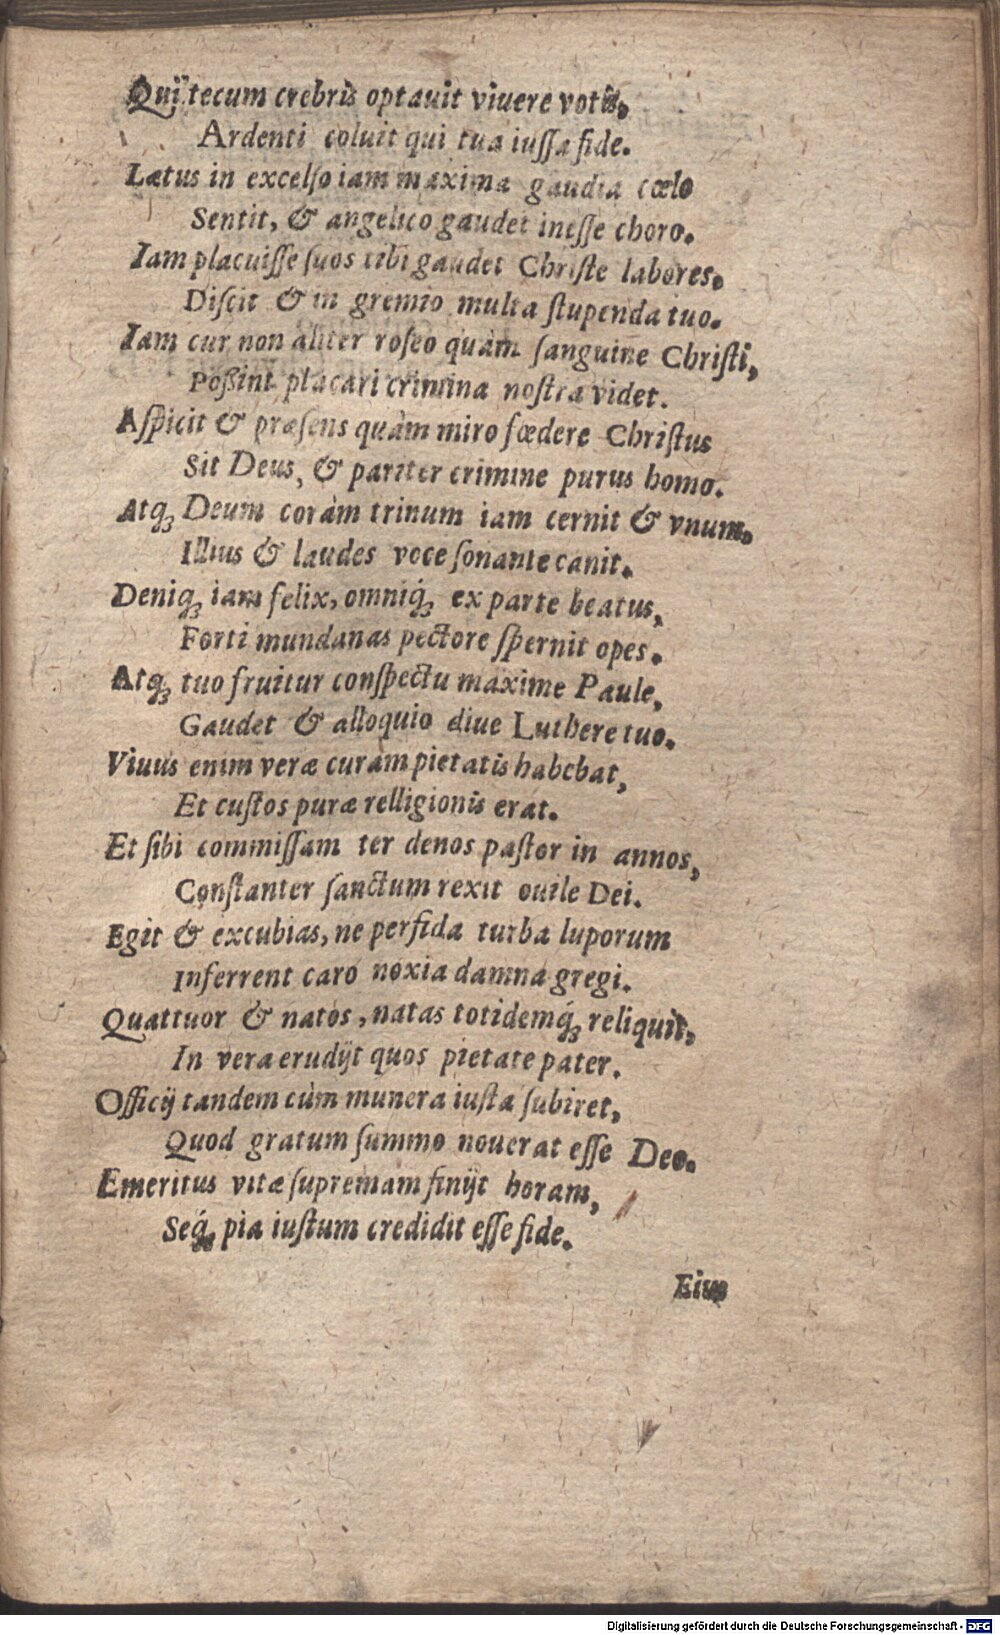 Quĳ tecum crebris optauit viuere votis,
Ardenti coluit qui tua iuſſa fide.
Lætus in excelſo iam maxima gaudia cœlo
Sentit, & angelico gaudet ineſſe choro.
Iam placuiſſe ſuos tibi gaudet Chriſte labores,
Diſcit & in gremio multa ſtupenda tuo.
Iam cur non aliter roſeo quàm ſanguine Chriſti,
Poßint placari crimina noſtra videt.
Aſpicit & præſens quàm miro fœdere Chriſtus
Sit Deus, & pariter crimine purus homo.
Atq; Deum coràm trinum iam cernit & vnum,
Illius & laudes voce ſonante canit.
Deniq; iam felix, omniq́; ex parte beatus,
Forti mundanas pectore ſpernit opes.
Atq; tuo fruitur conſpectu maxime Paule,
Gaudet & alloquio diue Luthere tuo.
Viuus enim veræ curam pietatis habebat,
Et cuſtos puræ relligionis erat.
Et ſibi commiſſam ter denos paſtor in annos,
Conſtanter ſanctum rexit ouile Dei.
Egit & excubias, ne perfida turba luporum
Inferrent caro noxia damna gregi.
Quattuor & natos, natas totidemq́; reliquit,
In vera erudĳt quos pietate pater.
Officĳ tandem cùm munera iuſta ſubiret,
Quod gratum ſummo nouerat eſſe Deo.
Emeritus vitæ ſupremam finĳt horam,
Seq́; pia iuſtum credidit eſſe fide.
Eius
Digitalisierung gefördert durch die Deutsche Forschungsgemeinschaft - DFG